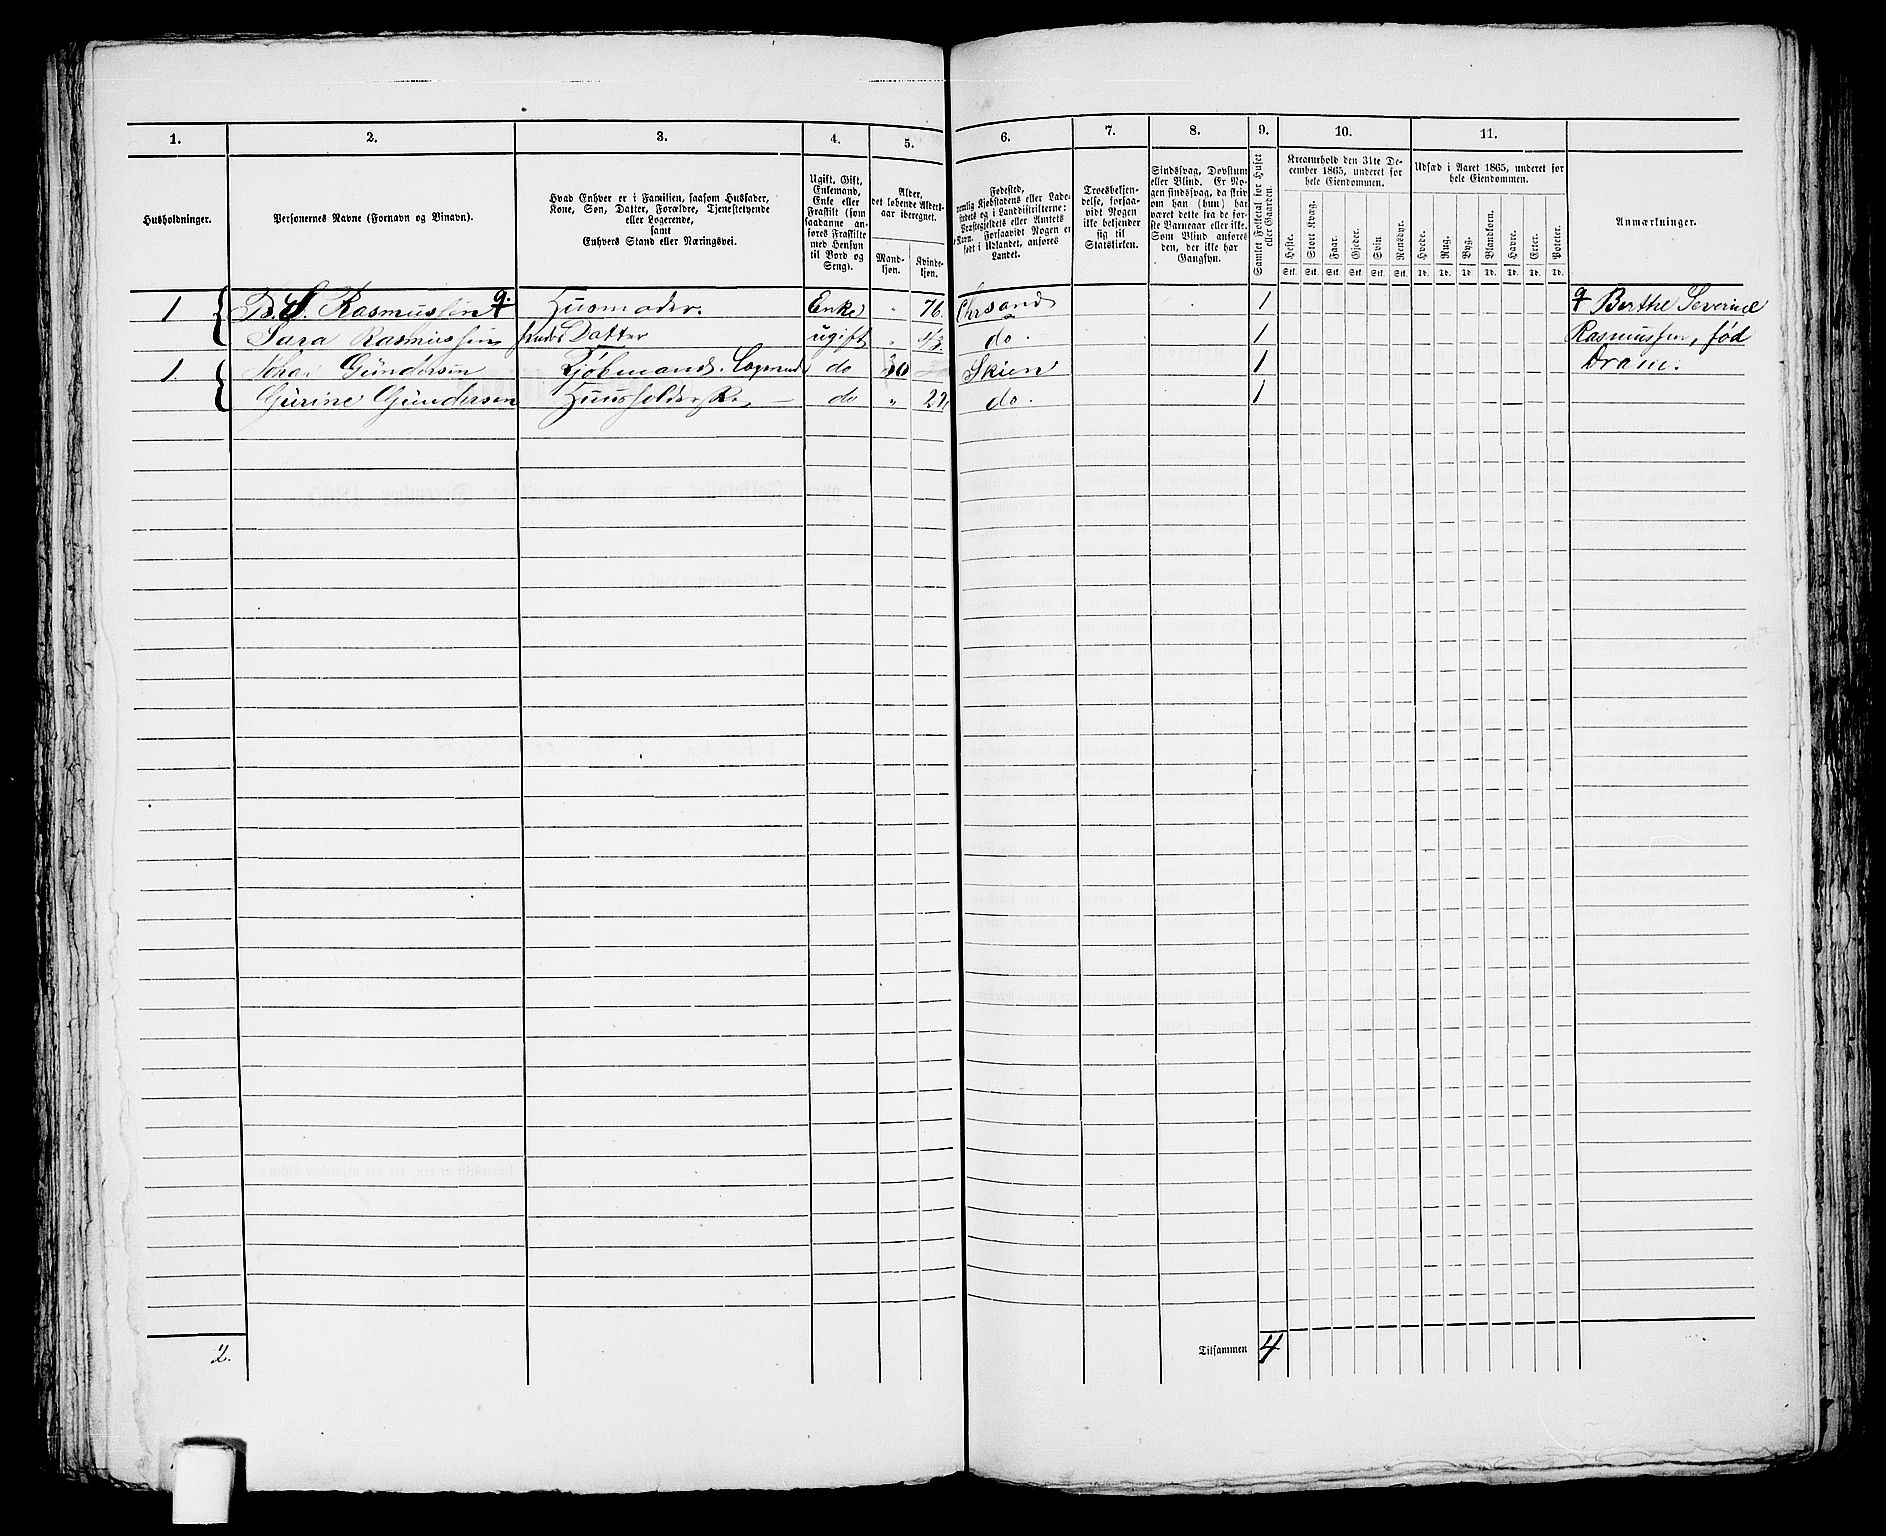 1. 2. 3. 4. 5. 6. 7. 8. 9. 10. 11.
Husholdninger.
Personernes Navne (Fornavn og Binavn).
Hvad Enhver er i Familien, saasom Husfader,
Kone, Søn, Datter, Forældre, Tjenestetyende
eller Logerende,
samt
Enhvers Stand eller Næringsvei.
Ugift, Gift,
Enkemand,
Enke eller
Fraskilt (som
saadanne an-
føres Fraskilte
med Hensyn
til Bord og
Seng).
Alder,
det løbende Alders-
aar iberegnet.
Mand-
kjøn.
Kvinde-
kjøn.
Fødested,
nemlig Kjøbstadens eller Lade-
stedets og i Landdistrikterne:
Præstegjeldets eller Amtets
Navn. Forsaavidt Nogen er
født i Udlandet, anføres
Landet.
Troesbekjen-
delse, forsaa-
vidt Nogen
ikke bekjender
sig til
Statskirken.
Sindssvag, Døvstum
eller Blind. Er No-
gen sindssvag, da skriv
om han (hun) har
været dette fra de før-
ste Barneaar eller ikke.
Som Blind anføres
den, der ikke har
Gangsyn.
Samlet Folketal for Huset
eller Gaarden.
Kreaturhold den 31te De-
cember 1865, underet for
hele Eiendommen.
Heste. Stort Kvæg. Faar. Gjeder. Svin. Rensdyr.
Stk. Stk. Stk. Stk. Stk. Stk.
Udsæd i Aaret 1865, underet for
hele Eiendommen.
Hvede. Rug. Byg. Blandkorn. Havre. Erter. Poteter.
Td. Td. Td. Td. Td. Td. Td.
Anmærkninger.
1 B. S. Rasmussen q. Husmoder. Enke " 76. Chrsand 1 q Berthe Severine
Sara Rasmussen hendes Datter ugift " 43. do. 1 Rasmussen, fød
1. Gundersen Kjøbmand. Logerend do 30 Skien 1 Dram.
Gurine Gundersen Huusholderske — do " 22, do. 1
2. Tilsammen 4